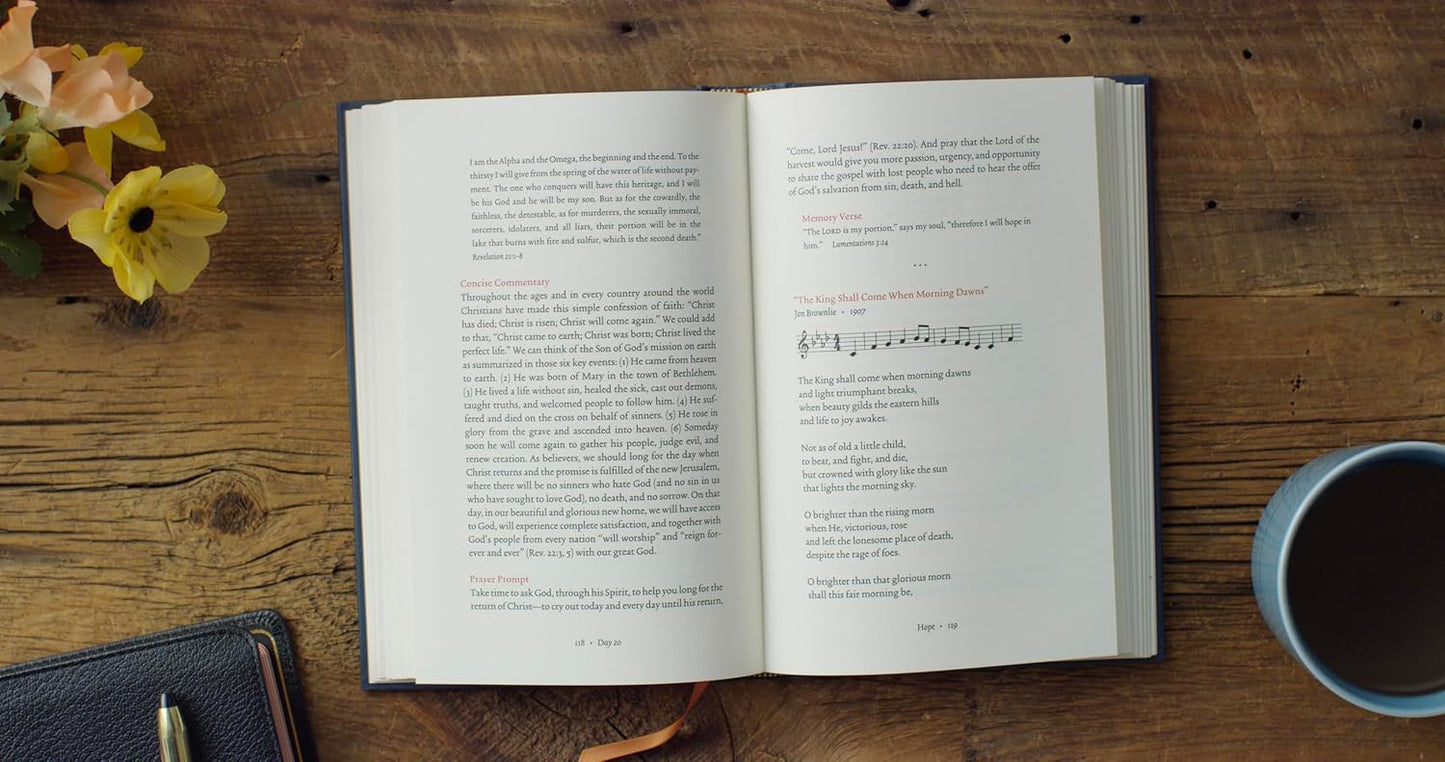 I am the Alpha and the Omega, the beginning and the end. To the
thirsty I will give from the spring of the water of life without pay-
ment. The one who conquers will have this heritage, and I will
be his God and he will be my son. But as for the cowardly, the
faithless, the detestable, as for murderers, the sexually immoral,
sorcerers, idolaters, and all liars, their portion will be in the
lake that burns with fire and sulfur, which is the second death.”
Revelation 21:1–8
Concise Commentary
Throughout the ages and in every country around the world
Christians have made this simple confession of faith: “Christ
has died; Christ is risen; Christ will come again.” We could add
to that, “Christ came to earth; Christ was born; Christ lived the
perfect life.” We can think of the Son of God’s mission on earth
as summarized in those six key events: (1) He came from heaven
to earth. (2) He was born of Mary in the town of Bethlehem.
(3) He lived a life without sin, healed the sick, cast out demons,
taught truths, and welcomed people to follow him. (4) He suf-
fered and died on the cross on behalf of sinners. (5) He rose in
glory from the grave and ascended into heaven. (6) Someday
soon he will come again to gather his people, judge evil, and
renew creation. As believers, we should long for the day when
Christ returns and the promise is fulfilled of the new Jerusalem,
where there will be no sinners who hate God (and no sin in us
who have sought to love God), no death, and no sorrow. On that
day, in our beautiful and glorious new home, we will have access
to God, will experience complete satisfaction, and together with
God’s people from every nation “will worship” and “reign for-
ever and ever” (Rev. 22:3, 5) with our great God.
Prayer Prompt
Take time to ask God, through his Spirit, to help you long for the
return of Christ—to cry out today and every day until his return,
118 • Day 20
“Come, Lord Jesus!” (Rev. 22:20). And pray that the Lord of the
harvest would give you more passion, urgency, and opportunity
to share the gospel with lost people who need to hear the offer
of God’s salvation from sin, death, and hell.
Memory Verse
“The LORD is my portion,” says my soul, “therefore I will hope in
him.” Lamentations 3:24
...
“The King Shall Come When Morning Dawns”
Jon Brownlie • 1907
The King shall come when morning dawns
and light triumphant breaks,
when beauty gilds the eastern hills
and life to joy awakes.
Not as of old a little child,
to bear, and fight, and die,
but crowned with glory like the sun
that lights the morning sky.
O brighter than the rising morn
when He, victorious, rose
and left the lonesome place of death,
despite the rage of foes.
O brighter than that glorious morn
shall this fair morning be,
Hope • 119